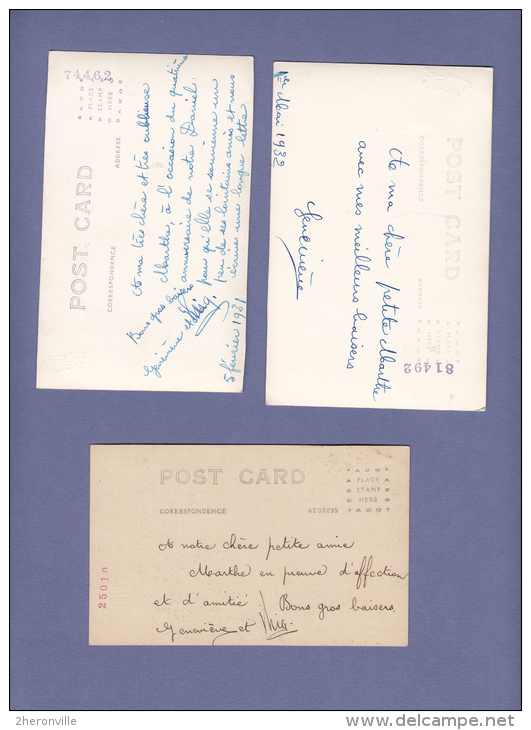 74462
AZO AZO
A PLACE A
Z STAMP Z
O HERE O
AZO AZO
POST CARD
CORRESPONDENCE ADDRESS
A ma très chère et très oublieuse
Marthe, à l'occasion du quatrième
anniversaire de notre Daniel.
pour qu'elle se souvienne un
peu de ses lointains amis et nous
écrive une longue lettre
Bons gros baisers
Geneviève et
5 février 1931
1er Mai 1932
A ma chère petite Marthe
avec mes meilleurs baisers
Geneviève
POST CARD
CORRESPONDENCE ADDRESS
81492
POST CARD
CORRESPONDENCE ADDRESS
PLACE
STAMP
HERE
25010
A notre chère petite amie
Marthe en preuve d'affection
et d'amitié. Bons gros baisers,
Geneviève et
2heronville
www.delcampe.net